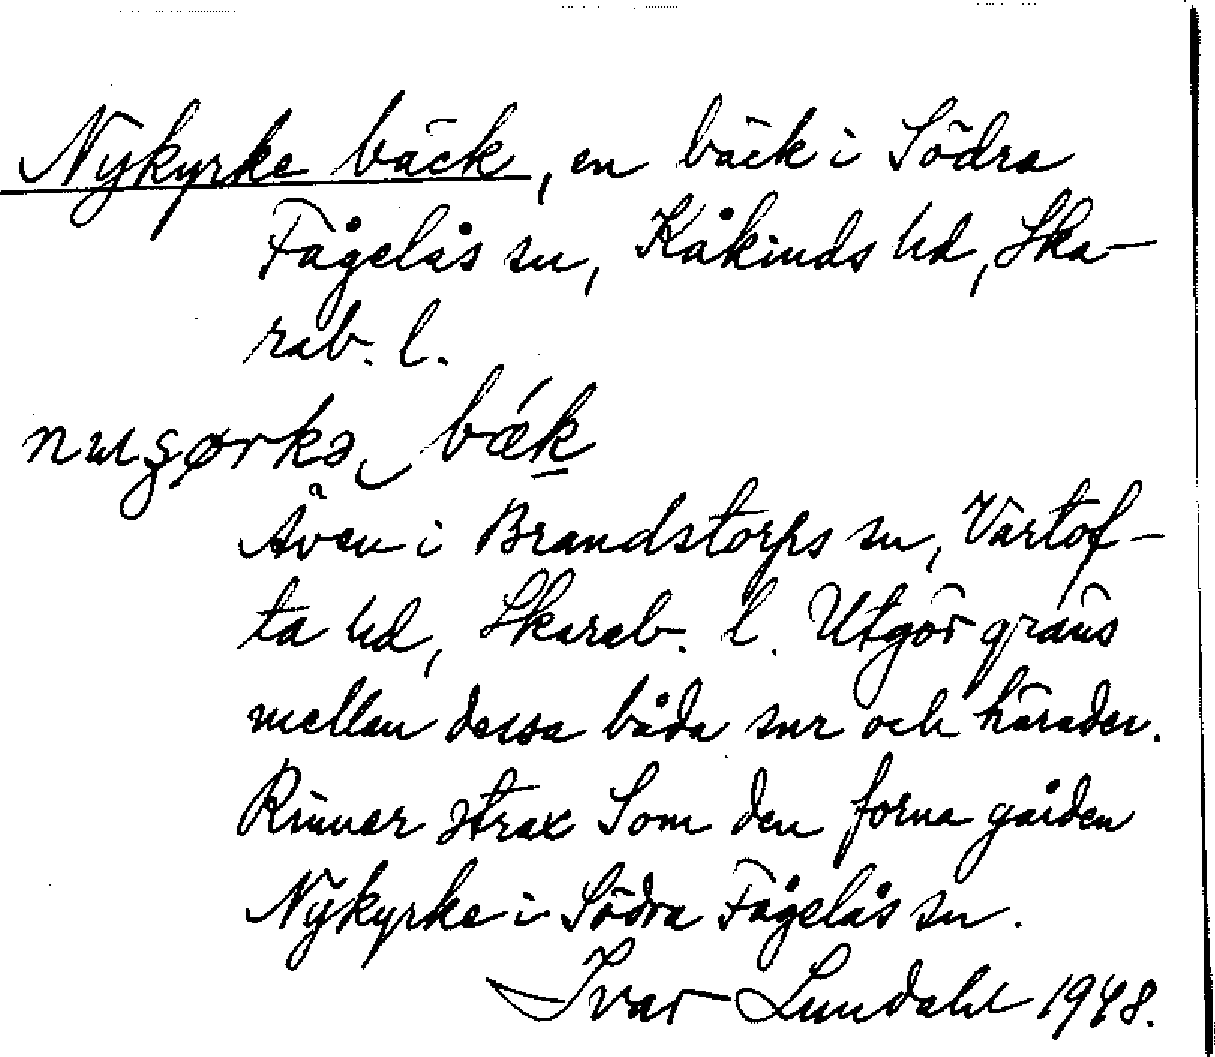 Nykyrke bäck, en bäck i Södra
Fågelås sn, Kåkinds hd, Ska-
rab. l.
bæ´k
Även i Brandstorps sn, Vartof-
ta hd, Skarab. l. Utgör gräns
mellan dessa båda snr och härader.
Rinner strax Som den forna gården
Nykyrke i Södra Fågelås sn.
Ivar Lundahl 1948.